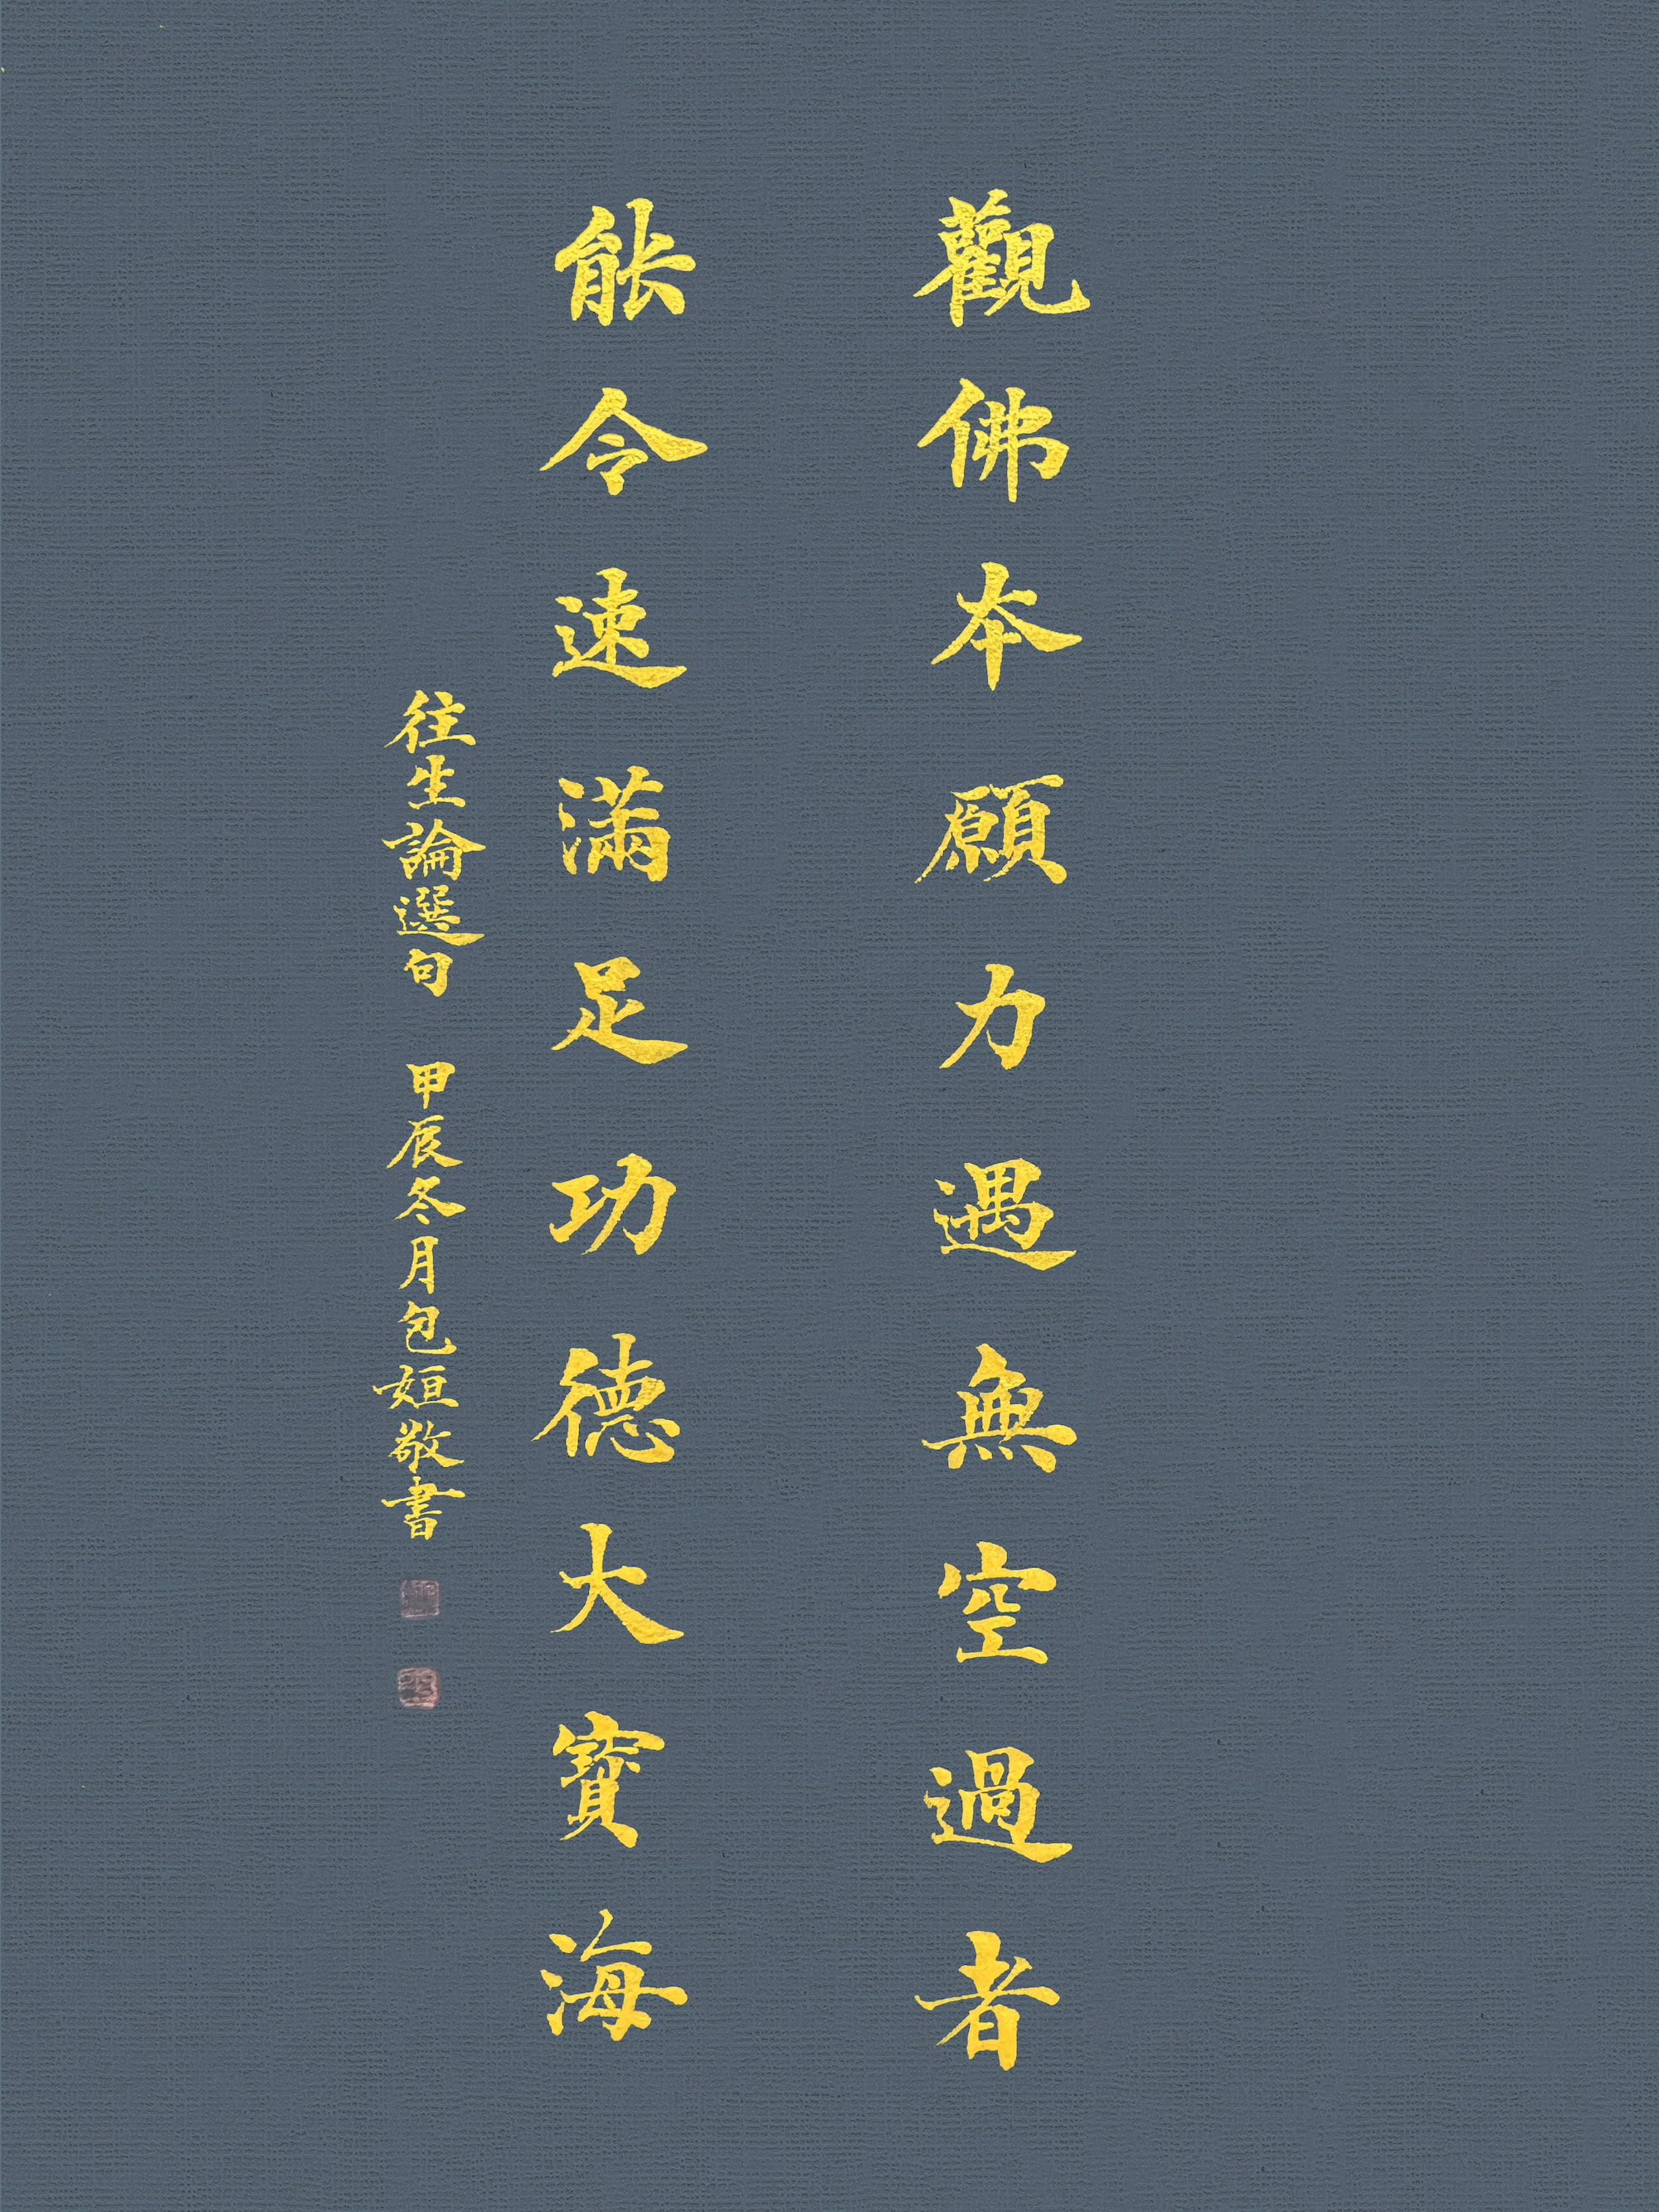 觀佛本願力遇無空過者
能令速滿足功德大寶海
往生論選句 甲辰冬月包姮敬書